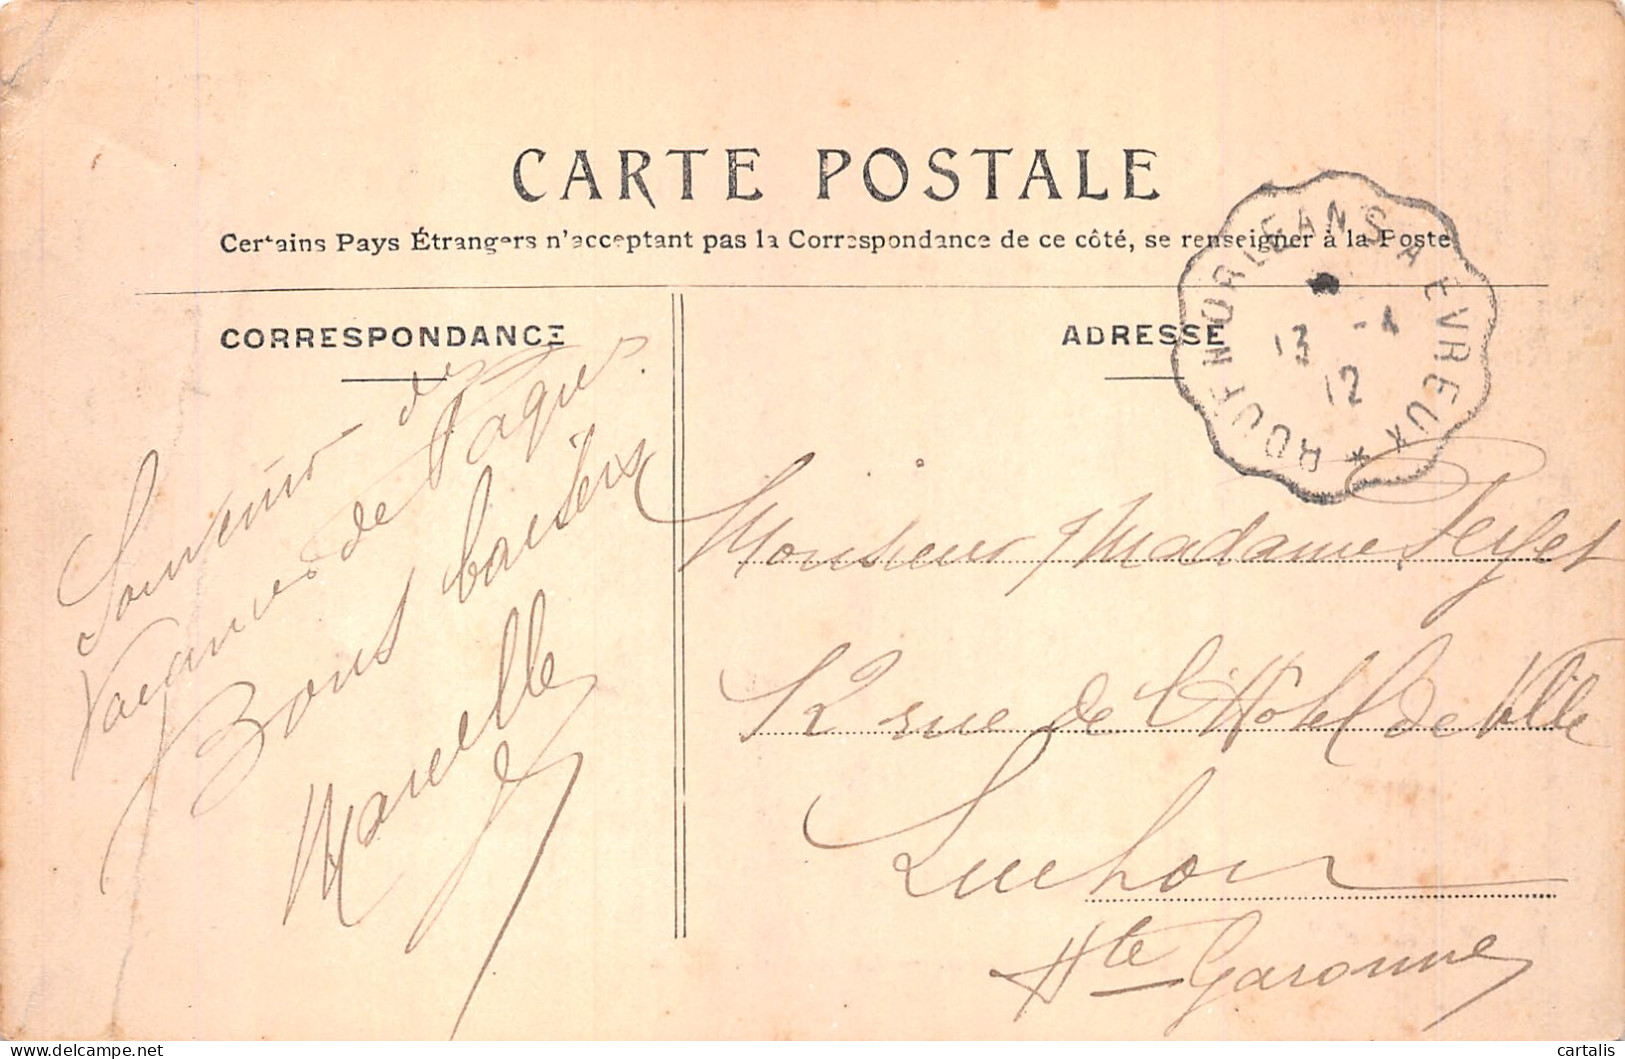 CARTE POSTALE
Certains Pays Étrangers n'acceptent pas la Correspondance de ce côté, se renseigner à la Poste
CORRESPONDANCE
ADRESSE
ORLEANS A EVREUX * ROUEN
13 -4
12
Souvenir des
Vacances de Pâques.
Bons baisers
Marcelle
Monsieur Madame
12 rue de l'Hôtel de Ville
Luchon
Hte Garonne
cartalis